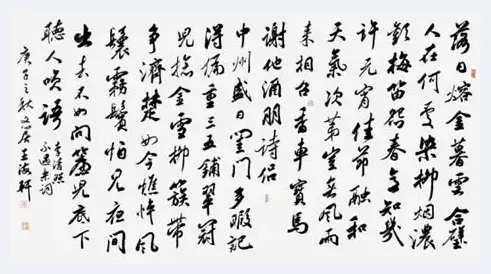 落日熔金暮雲合璧
人在何處染柳烟濃
吹梅笛怨春意知幾
許元宵佳節融和
天氣次第豈無風雨
来相召香車寶馬
謝他酒朋詩侣
中州盛日閨門多暇記
得偏重三五鋪翠冠
兒撚金雪柳簇帶
争濟楚如今憔悴風
鬟霧鬢怕見夜間
出去不如向簾兒底下
聽人笑語
李清照
永遇樂詞
庚子之秋